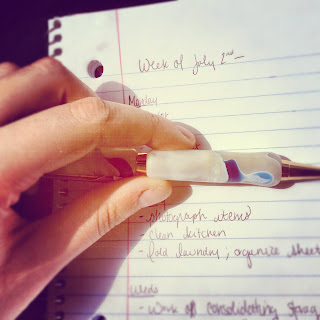 Week of July 2nd -
Monday
- photograph items
- clean kitchen
- fold laundry; organize sheet
Weds
- Work of consolidating